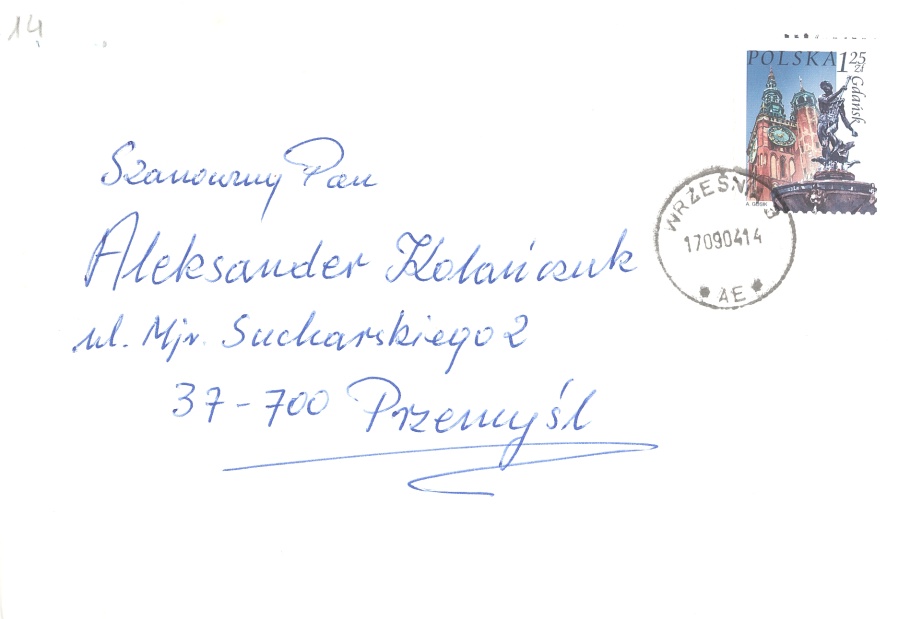 14
POLSKA 1 25 zł
Gdańsk
WRZEŚNIA
17090414
AE
Szanowny Pan
Aleksander Kolańczuk
ul. Mjr. Sucharskiego 2
37-700 Przemyśl